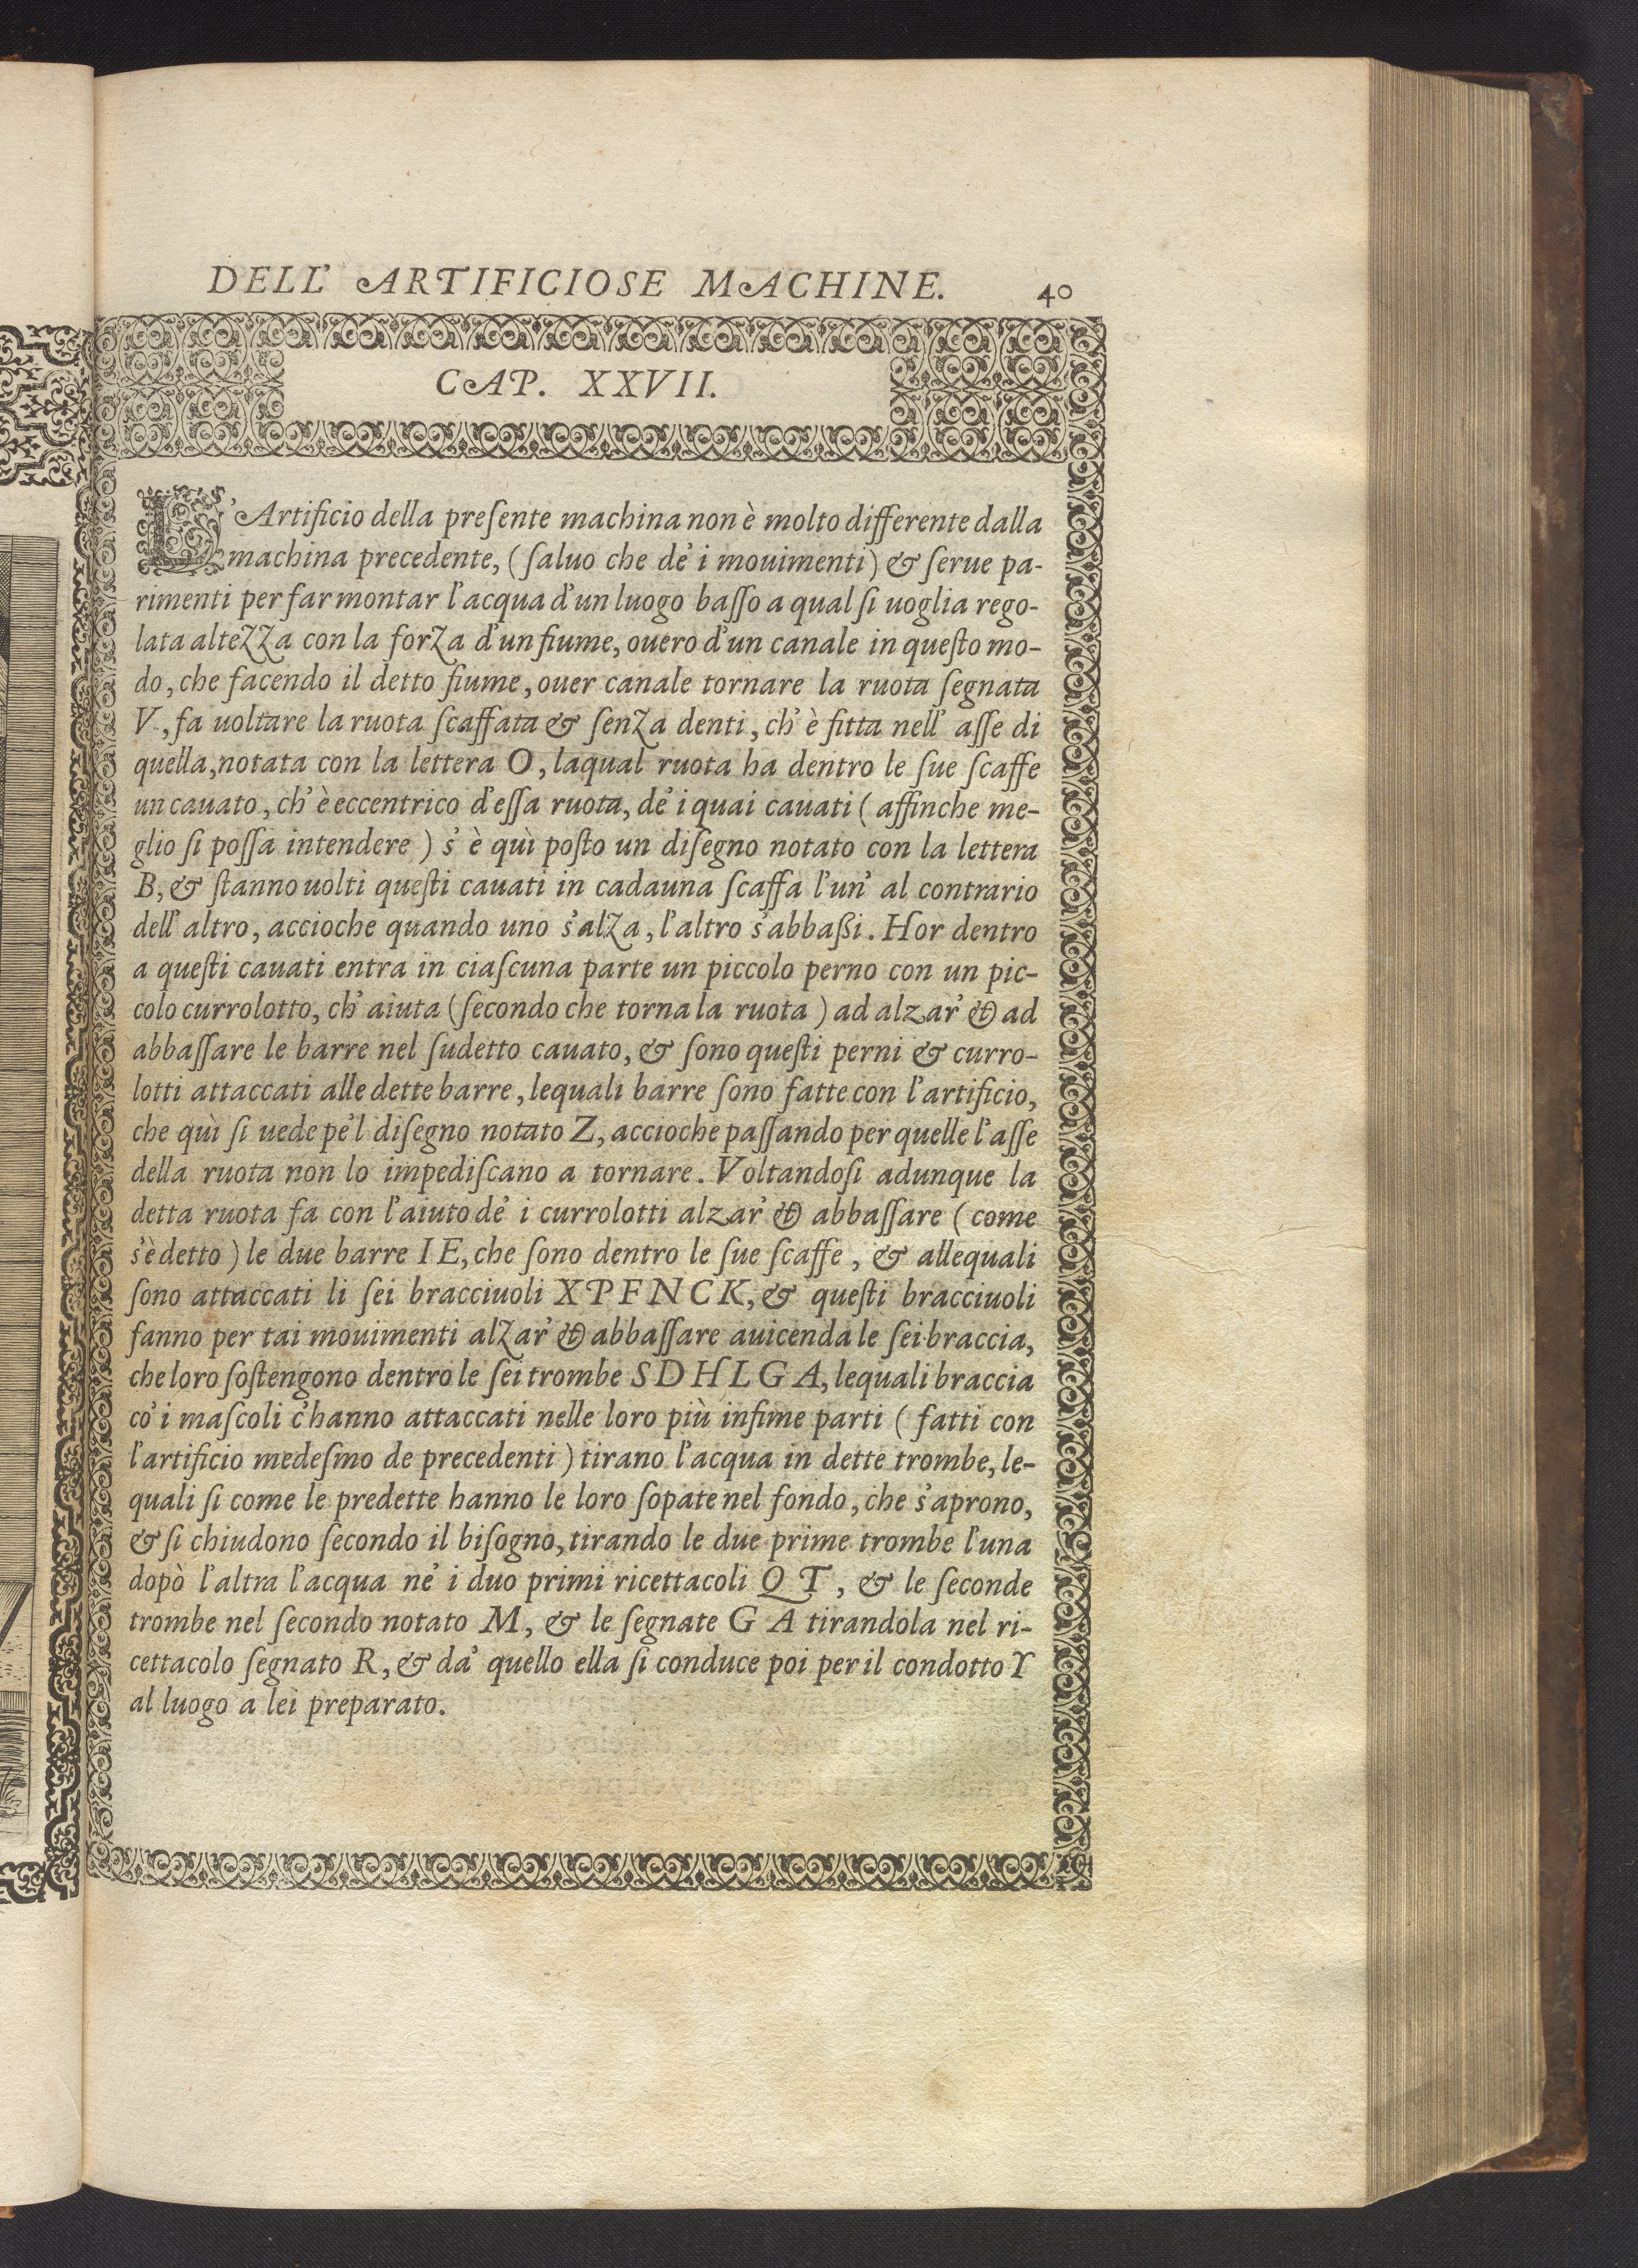 DELL' ARTIFICIOSE MACHINE. 40
CAP. XXVII.
L'Artificio della preſente machina non è molto differente dalla
machina precedente, (ſaluo che de' i mouimenti) & ſerue pa-
rimenti per far montar l'acqua d'un luogo baſſo a qual ſi uoglia rego-
lata altezza con la forza d'un fiume, ouero d'un canale in queſto mo-
do, che facendo il detto fiume, ouer canale tornare la ruota ſegnata
V, fa uoltare la ruota ſcaffata & ſenza denti, ch' è fitta nell' aſſe di
quella, notata con la lettera O, laqual ruota ha dentro le ſue ſcaffe
un cauato, ch' è eccentrico d'eſſa ruota, de' i quai cauati (affinche me-
glio ſi poſſa intendere) s' è quì poſto un diſegno notato con la lettera
B, & ſtanno uolti queſti cauati in cadauna ſcaffa l'un' al contrario
dell' altro, accioche quando uno s'alza, l'altro s'abbaßi. Hor dentro
a queſti cauati entra in ciaſcuna parte un piccolo perno con un pic-
colo currolotto, ch' aiuta (ſecondo che torna la ruota) ad alzar' & ad
abbaſſare le barre nel ſudetto cauato, & ſono queſti perni & curro-
lotti attaccati alle dette barre, lequali barre ſono fatte con l'artificio,
che quì ſi uede pe'l diſegno notato Z, accioche paſſando per quelle l'aſſe
della ruota non lo impediſcano a tornare. Voltandoſi adunque la
detta ruota fa con l'aiuto de' i currolotti alzar' & abbaſſare (come
s'è detto) le due barre I E, che ſono dentro le ſue ſcaffe, & allequali
ſono attaccati li ſei bracciuoli X P F N C K, & queſti bracciuoli
fanno per tai mouimenti alzar' & abbaſſare auicenda le ſei braccia,
che loro ſoſtengono dentro le ſei trombe S D H L G A, lequali braccia
co' i maſcoli c'hanno attaccati nelle loro più infime parti (fatti con
l'artificio medeſmo de precedenti) tirano l'acqua in dette trombe, le-
quali ſi come le predette hanno le loro ſopate nel fondo, che s'aprono,
& ſi chiudono ſecondo il biſogno, tirando le due prime trombe l'una
dopò l'altra l'acqua ne' i duo primi ricettacoli Q T, & le ſeconde
trombe nel ſecondo notato M, & le ſegnate G A tirandola nel ri-
cettacolo ſegnato R, & da' quello ella ſi conduce poi per il condotto Y
al luogo a lei preparato.